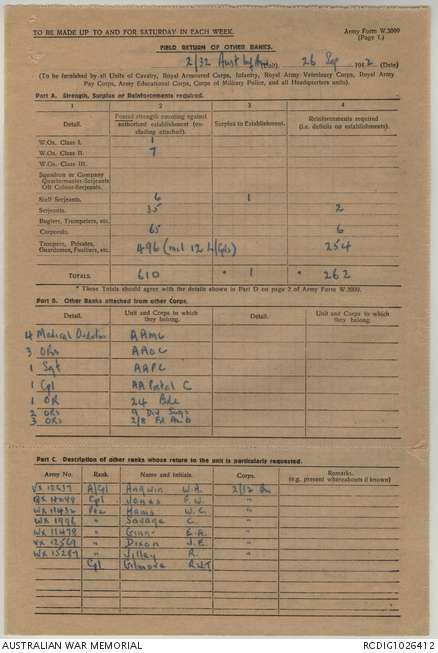 TO BE MADE UP TO AND FOR SATURDAY IN EACH WEEK.
Army Form W.3009
(Page 1.)
FIELD RETURN OF OTHER RANKS.
2/32 Aust Inf Bn (Unit) 26 Sep 1942 (Date)
(To be furnished by all Units of Cavalry, Royal Armoured Corps, Infantry, Royal Army Veterinary Corps, Royal Army
Pay Corps, Army Educational Corps, Corps of Military Police, and all Headquarters units).
Part A. Strength, Surplus or Reinforcements required.
1 2 3 4
Detail. Posted strength counting against authorized establishment (excluding attached). Surplus to Establishment. Reinforcements required (i.e. deficits on establishments).
W.Os. Class I. 1
W.Os. Class II. 7
W.Os. Class III.
Squadron or Company
Quartermaster-Serjeants
OR Colour-Serjeants.
Staff Serjeants. 6 1
Serjeants. 35 2
Buglers, Trumpeters, etc.
Corporals. 65 6
Troopers, Privates, Guardsmen, Fusiliers, etc. 496 (incl 12 L/Cpls) 254
TOTALS. 610 * 1 * 262
* These Totals should agree with the details shown in Part D on page 2 of Army Form W.3009.
Part B. Other Ranks attached from other Corps.
Detail. Unit and Corps to which they belong. Detail. Unit and Corps to which they belong.
4 Medical AAMC
3 ORs AAOC
1 Sgt AAPC
1 Cpl AA Postal C
1 OR 24 Bde
2 ORs 9 Div Sigs
3 ORs 2/8 Fd Amb
Part C. Description of other ranks whose return to the unit is particularly requested.
Army No. Rank. Name and Initials. Corps. Remarks. (e.g. present whereabouts if known)
A/Cpl Angwin W.A.
Cpl Jones F.W. "
Pte Hams W.C. "
WX 1996 " Savage C. "
WX 11478 " Ginn E.A. "
VX 12569 " Dixon J.E. "
WX 15287 " Jilley R. "
Cpl Gilmore
AUSTRALIAN WAR MEMORIAL
RCDIG1026412